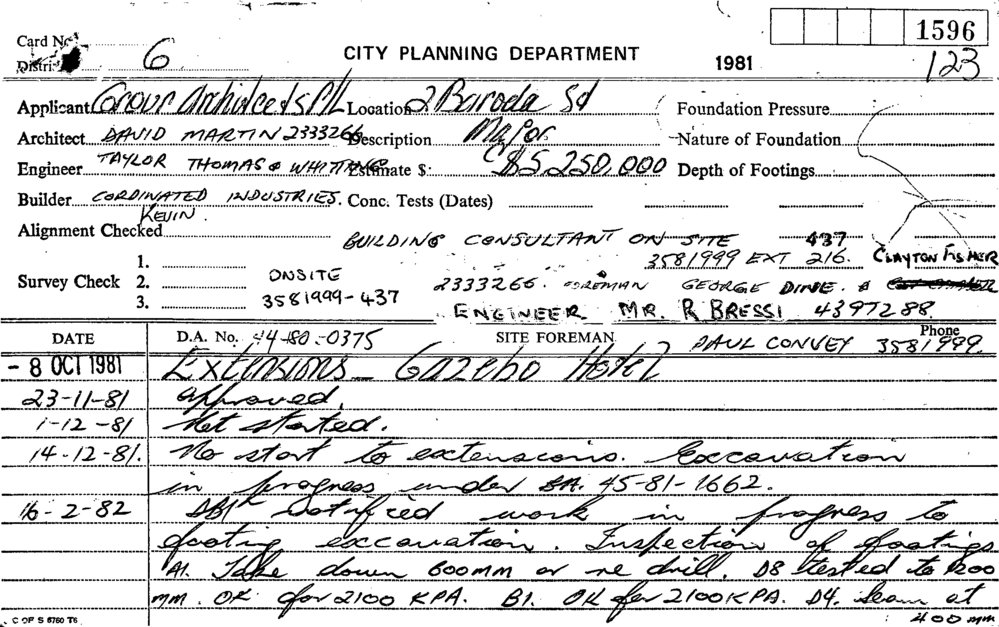 1596
Card No. CITY PLANNING DEPARTMENT 1981 123
District 6
Applicant Group Architects P/L Location 2 Baroda St Foundation Pressure
Architect DAVID MARTIN 2333266 Description Major Nature of Foundation
Engineer TAYLOR THOMAS & WHITTING Estimate $ $5,250,000 Depth of Footings
Builder CORDINATED INDUSTRIES. Conc. Tests (Dates)
KEVIN.
Alignment Checked BUILDING CONSULTANT ON SITE 437
1. 3581999 EXT 216. CLAYTON FISHER
Survey Check 2. ONSITE 2333266. FOREMAN GEORGE DINE. &
3. 3581999-437 ENGINEER MR. R BRESSI 4397288.
DATE D.A. No. 44-80-0375 SITE FOREMAN PAUL CONVEY Phone 3581999.
- 8 OCT 1981 Extensions - Gazebo Hotel
23-11-81 Approved.
1-12-81 Not started.
14-12-81. No start to extensions. Excavation
in progress under BA. 45-81-1662.
16-2-82 notified work in progress to
footing excavation. Inspection of footings
A1. Take down 600MM or re drill. D8 tested to 1200
mm. OK for 2100 KPA. B1. OK for 2100KPA. D4. Seam at
C OF S 6760 T6 400 mm